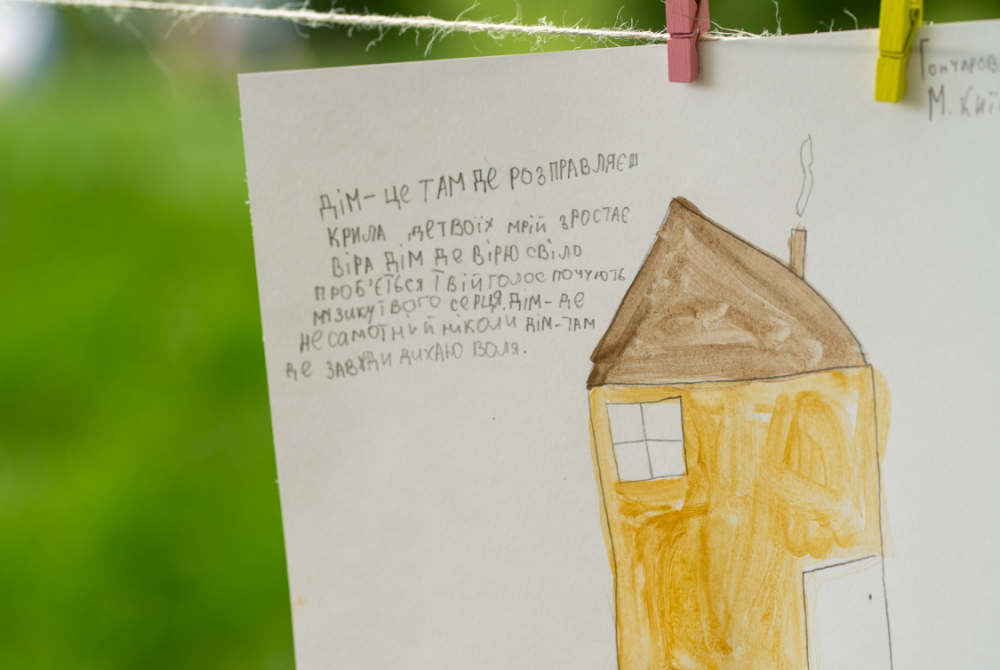 Гончаров
м. Киї
Дім - це там де розправляєш
крила де твоїх мрій зростає
віра Дім де вірю свіло
проб'ється Твій голос почують
музику твого серця. Дім - де
не самотний ніколи Дім - там
де завжди дихаю воля.